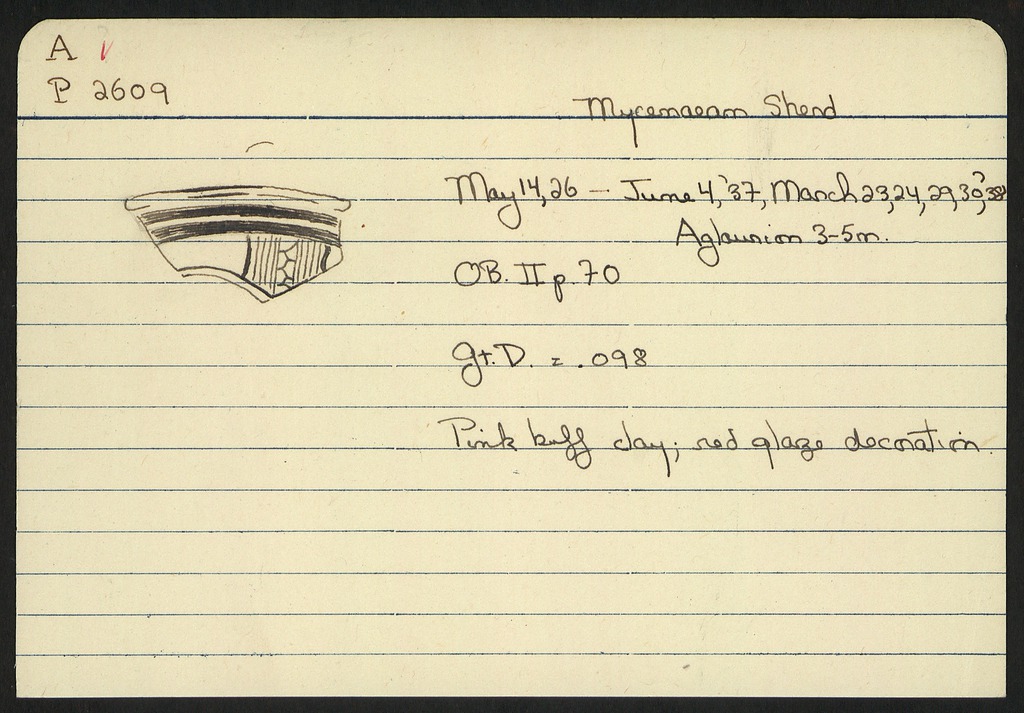 A
P 2609
Mycenaean Sherd
May 14, 26 – June 4, '37, March 23, 24, 29, 30, '38
Aglaurion 3-5m.
OB. II p. 70
Gt. D. = .098
Pink buff clay; red glaze decoration.